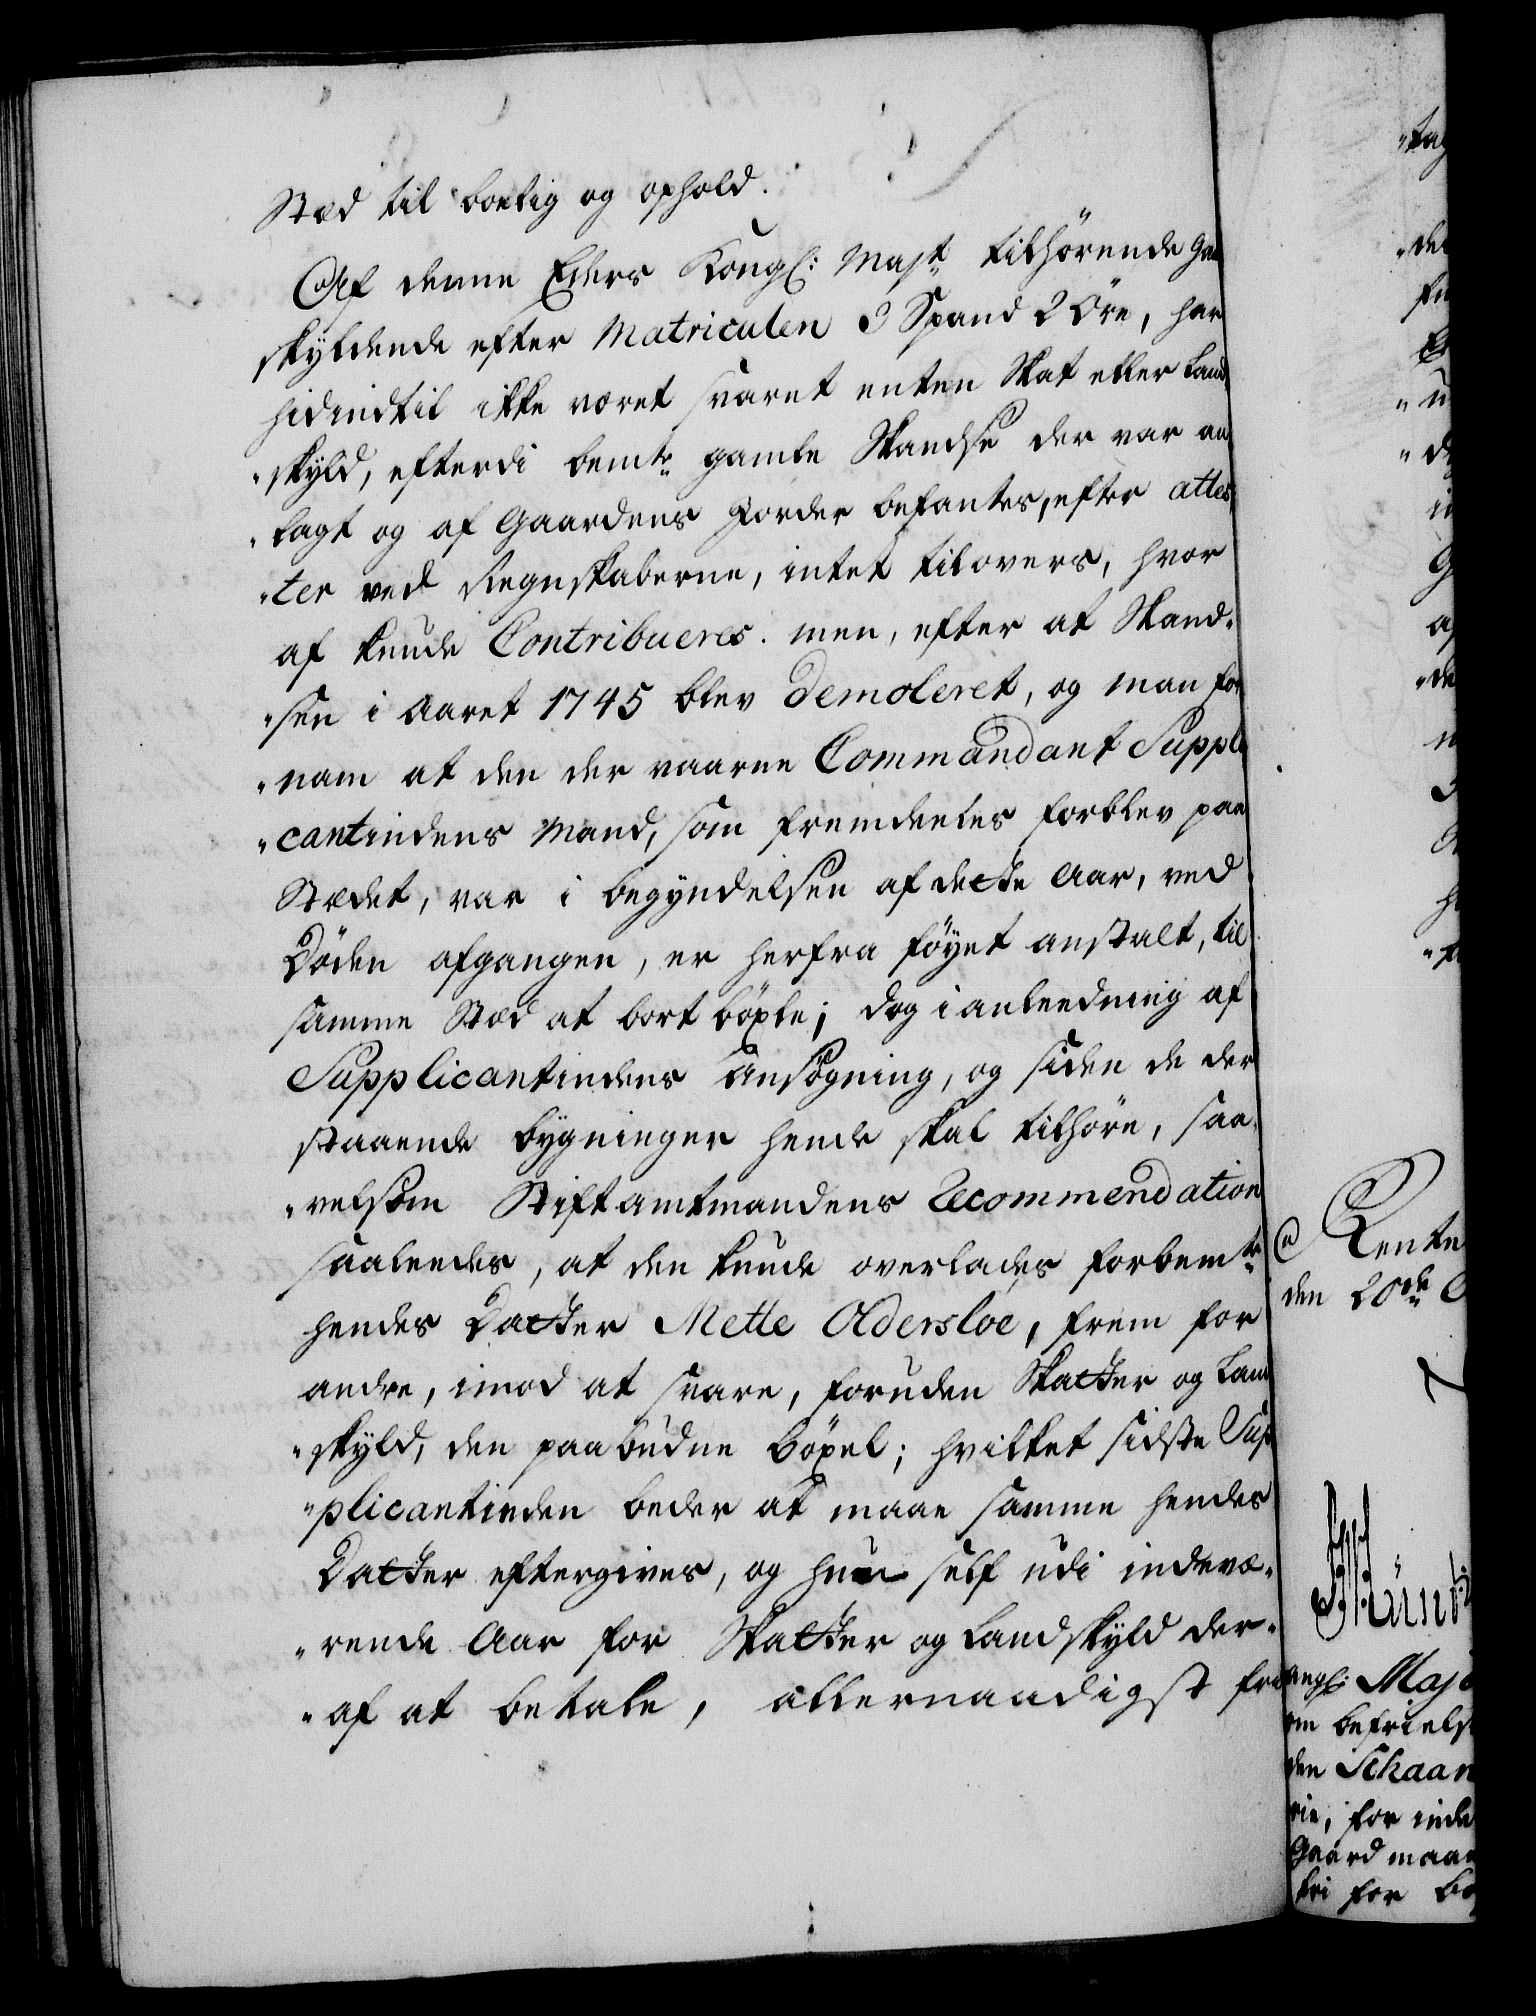 Stæd til boelig og ophold.
Af denne Eders Kongl: Majt tilhørende Gaa
skyldende efter Matriculen 3 Spand 2 Öre, har
hidindtil ikke været svaret enten Skat eller Land
"skyld, efterdi bemte gamle Skandse der var an
"lagt og af Gaardens Jorder befantes, efter attes
"ter ved Regnskaberne, intet tilovers, hvor
af kunde Contribueres. men, efter at Skand„
"sen i Aaret 1745 blev demoleret, og man for
"nam at den der værne Commandant Suppli
"cantindens Mand, som fremdeeles forblev paa
Stædet, var i begyndelsen af dette Aar, ved
Döden afgangen, er herfra föyet anstalt, til
samme Stæd at bortböxle; dog i anleedning af
Supplicantindens Ansögning, og siden de der
staaende bygninger hende skal tilhöre, saa„
"velsom Stiftamtmandens Recommendation
saaleedes, at den kunde overlades forbemte
hendes Datter Mette Oldersloe, frem for
andre, imod at svare, foruden Skatter og Land
"skyld, den paabudne böxel; hvilket sidste Sup
"plicantinden beder at maae samme hendes
Datter eftergives, og hun self udi indevæ„
"rende Aar for Skatter og Landskyld der„
"af at betale, allernaadigst fri
Rente
den 20de
Majt
om befriels
den Schaan
for inde
Gaard maae
fri for bö